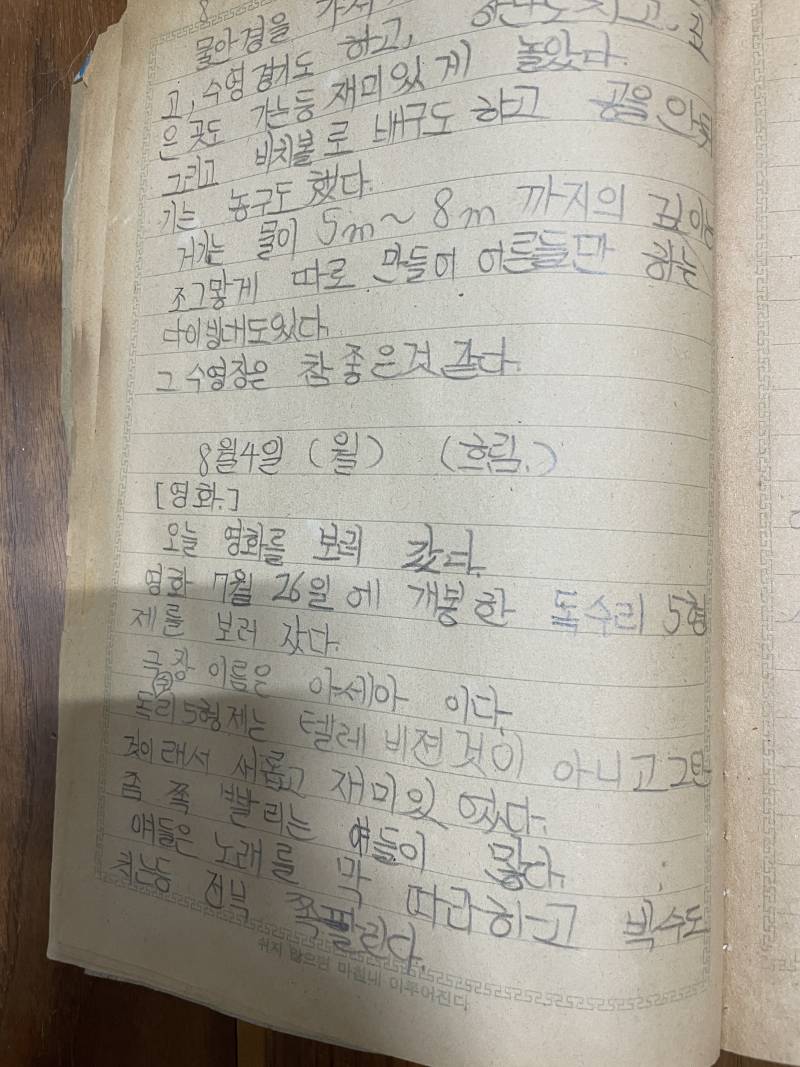 8
물안경을 가져
고, 수영경기도 하고,
은 곳도 가는등 재미있게 놀았다.
그리고 비치볼로 배구도 하고 공을 안
기는 농구도 했다.
거기는 물이 5m~8m 까지의 깊이
조그맣게 따로 만들어 어른들만 하는
다이빙대도있다.
그 수영장은 참 좋은것 같다.
8월4일 (월) (흐림.)
[영화.]
오늘 영화를 보러 갔다.
영화 7월 26일에 개봉한 독수리 5형
제를 보러 갔다.
극장 이름은 아세아 이다.
독수리5형제는 텔레비젼것이 아니고 2탄
것이래서 새롭고 재미있었다.
좀 쪽 발리는 얘들이 많다.
얘들은 노래를 막 따라하고 박수도
치는등 전부 쪽팔린다.
쉬지 않으면 마침내 이루어진다